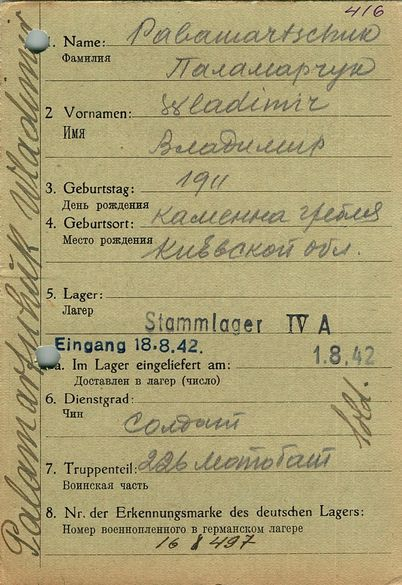 416
1. Name: Palamartschuk
Фамилия Паламарчук
2 Vornamen: Wladimir
Имя Владимир
3. Geburtstag: 1911
День рождения
4. Geburtsort: Каменна гребля
Место рождения Киевской обл.
5. Lager:
Лагер
Stammlager IV A
Eingang 18.8.42.
1.8.42
5a. Im Lager eingeliefert am:
Доставлен в лагер (число)
6. Dienstgrad:
Чин солдат
Sold.
7. Truppenteil: 226 мотобат
Воинская часть
8. Nr. der Erkennungsmarke des deutschen Lagers:
Номер военнопленного в германском лагере
Palamartschuk Wladimir